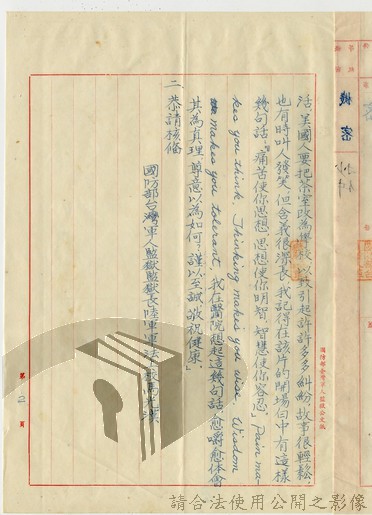 機密
活,美國人要把茶室改為學校,以致引起許許多多糾紛,故事很輕鬆
也有時叫人發笑,但含義很深長,我記得在該片的開場白中有這樣
幾句話:「痛苦使你思想,思想使你明智,智慧使你容忍」Pain ma-
kes you think. Thinking makes you wise. Wisdom
makes you tolerant. 我在醫院想起這幾句話,愈嚼愈体會
其為真理,尊意以為如何?謹以至誠,敬祝健康」
二、恭請核備
國防部台灣軍人監獄監獄長陸軍軍法
第2頁
請合法使用公開之影像